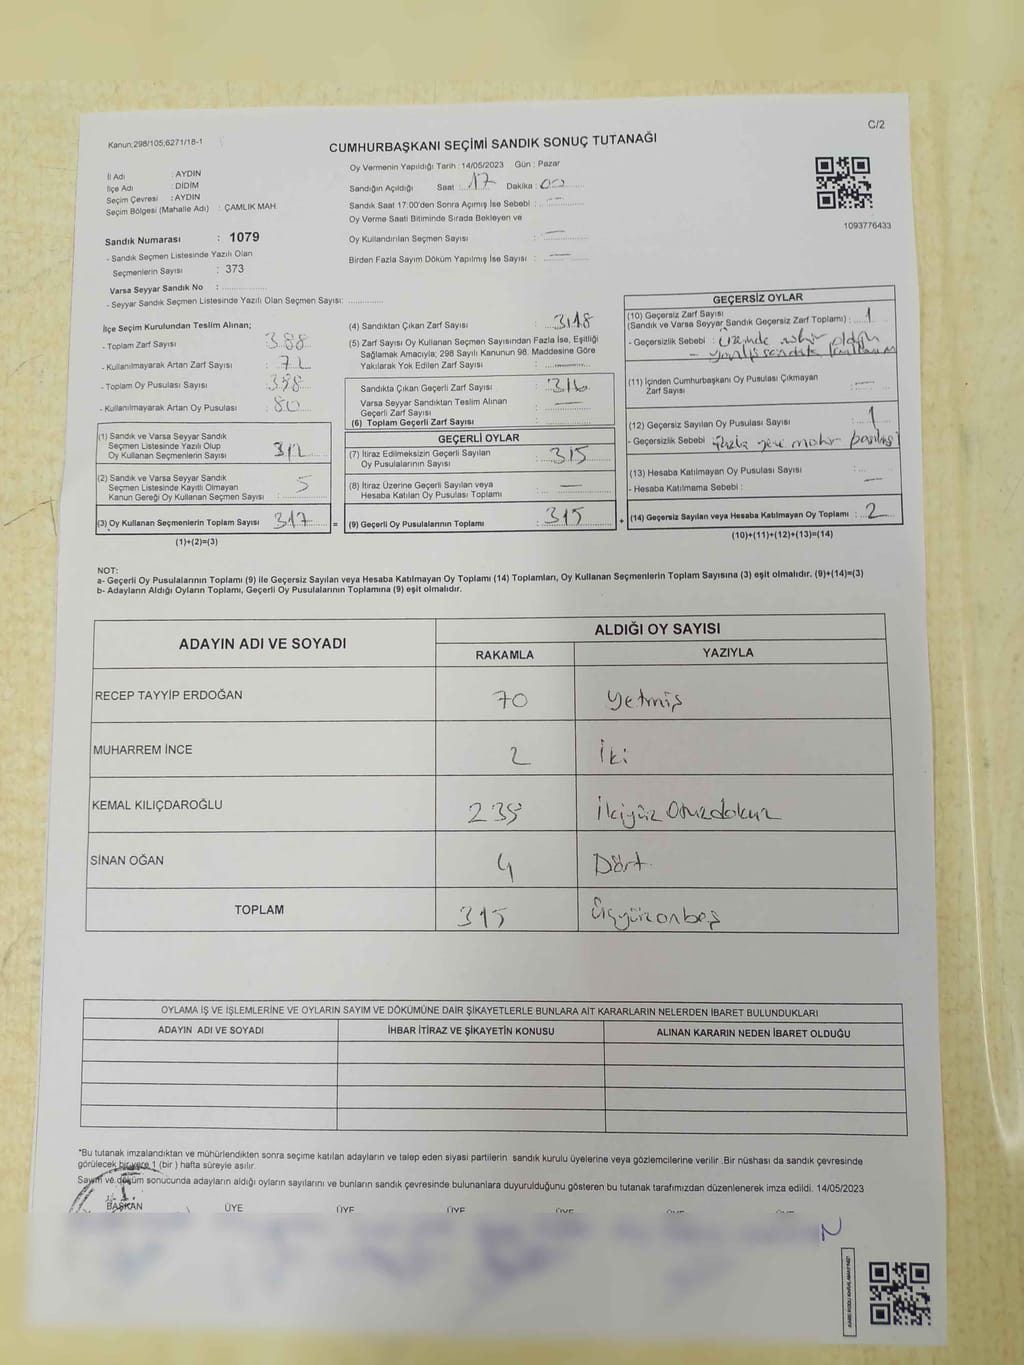 C/2
Kanun;298/105;6271/18-1
CUMHURBAŞKANI SEÇİMİ SANDIK SONUÇ TUTANAĞI
Oy Vermenin Yapıldığı Tarih : 14/05/2023 Gün : Pazar
İl Adı : AYDIN
İlçe Adı : DİDİM
Seçim Çevresi : AYDIN
Seçim Bölgesi (Mahalle Adı) : ÇAMLIK MAH.
Sandığın Açıldığı Saat : 17 Dakika : 00
Sandık Saat 17:00'den Sonra Açımış İse Sebebi : —
Oy Verme Saati Bitiminde Sırada Bekleyen ve
Oy Kullandırılan Seçmen Sayısı : —
Birden Fazla Sayım Döküm Yapılmış İse Sayısı : —
1093776433
Sandık Numarası : 1079
- Sandık Seçmen Listesinde Yazılı Olan
Seçmenlerin Sayısı : 373
Varsa Seyyar Sandık No :
- Seyyar Sandık Seçmen Listesinde Yazılı Olan Seçmen Sayısı:
İlçe Seçim Kurulundan Teslim Alınan;
- Toplam Zarf Sayısı : 388
- Kullanılmayarak Artan Zarf Sayısı :
- Toplam Oy Pusulası Sayısı :
- Kullanılmayarak Artan Oy Pusulası : 80
(1) Sandık ve Varsa Seyyar Sandık
Seçmen Listesinde Yazılı Olup
Oy Kullanan Seçmenlerin Sayısı 312
(2) Sandık ve Varsa Seyyar Sandık
Seçmen Listesinde Kayıtlı Olmayan
Kanun Gereği Oy Kullanan Seçmen Sayısı : 5
(3) Oy Kullanan Seçmenlerin Toplam Sayısı 317 =
(1)+(2)=(3)
(4) Sandıktan Çıkan Zarf Sayısı : 318
(5) Zarf Sayısı Oy Kullanan Seçmen Sayısından Fazla İse, Eşitliği
Sağlamak Amacıyla; 298 Sayılı Kanunun 98. Maddesine Göre
Yakılarak Yok Edilen Zarf Sayısı :
Sandıkta Çıkan Geçerli Zarf Sayısı : 316
Varsa Seyyar Sandıktan Teslim Alınan
Geçerli Zarf Sayısı : —
(6) Toplam Geçerli Zarf Sayısı :
GEÇERLİ OYLAR
(7) İtiraz Edilmeksizin Geçerli Sayılan
Oy Pusulalarının Sayısı : 315
(8) İtiraz Üzerine Geçerli Sayılan veya
Hesaba Katılan Oy Pusulası Toplamı : —
(9) Geçerli Oy Pusulalarının Toplamı : 315 +
GEÇERSİZ OYLAR
(10) Geçersiz Zarf Sayısı
(Sandık ve Varsa Seyyar Sandık Geçersiz Zarf Toplamı) : 1
- Geçersizlik Sebebi : Üzerinde mühür
(11) İçinden Cumhurbaşkanı Oy Pusulası Çıkmayan
Zarf Sayısı : —
(12) Geçersiz Sayılan Oy Pusulası Sayısı : 1
- Geçersizlik Sebebi fazla yere mühür basılması
(13) Hesaba Katılmayan Oy Pusulası Sayısı
- Hesaba Katılmama Sebebi : —
(14) Geçersiz Sayılan veya Hesaba Katılmayan Oy Toplamı : 2
(10)+(11)+(12)+(13)=(14)
NOT:
a- Geçerli Oy Pusulalarının Toplamı (9) ile Geçersiz Sayılan veya Hesaba Katılmayan Oy Toplamı (14) Toplamları, Oy Kullanan Seçmenlerin Toplam Sayısına (3) eşit olmalıdır. (9)+(14)=(3)
b- Adayların Aldığı Oyların Toplamı, Geçerli Oy Pusulalarının Toplamına (9) eşit olmalıdır.
ADAYIN ADI VE SOYADI ALDIĞI OY SAYISI
RAKAMLA YAZIYLA
RECEP TAYYİP ERDOĞAN 70 Yetmiş
MUHARREM İNCE 2 İki
KEMAL KILIÇDAROĞLU 239 İkiyüz Otuzdokuz
SİNAN OĞAN 4 Dört
TOPLAM 315 Üçyüzonbeş
OYLAMA İŞ VE İŞLEMLERİNE VE OYLARIN SAYIM VE DÖKÜMÜNE DAİR ŞİKAYETLERLE BUNLARA AİT KARARLARIN NELERDEN İBARET BULUNDUKLARI
ADAYIN ADI VE SOYADI İHBAR İTİRAZ VE ŞİKAYETİN KONUSU ALINAN KARARIN NEDEN İBARET OLDUĞU
*Bu tutanak imzalandıktan ve mühürlendikten sonra seçime katılan adayların ve talep eden siyasi partilerin sandık kurulu üyelerine veya gözlemcilerine verilir .Bir nüshası da sandık çevresinde
görülecek bir yere 1 (bir ) hafta süreyle asılır.
Sayım ve döküm sonucunda adayların aldığı oyların sayılarını ve bunların sandık çevresinde bulunanlara duyurulduğunu gösteren bu tutanak tarafımızdan düzenlenerek imza edildi. 14/05/2023
BAŞKAN ÜYE ÜYE ÜYE ÜYE